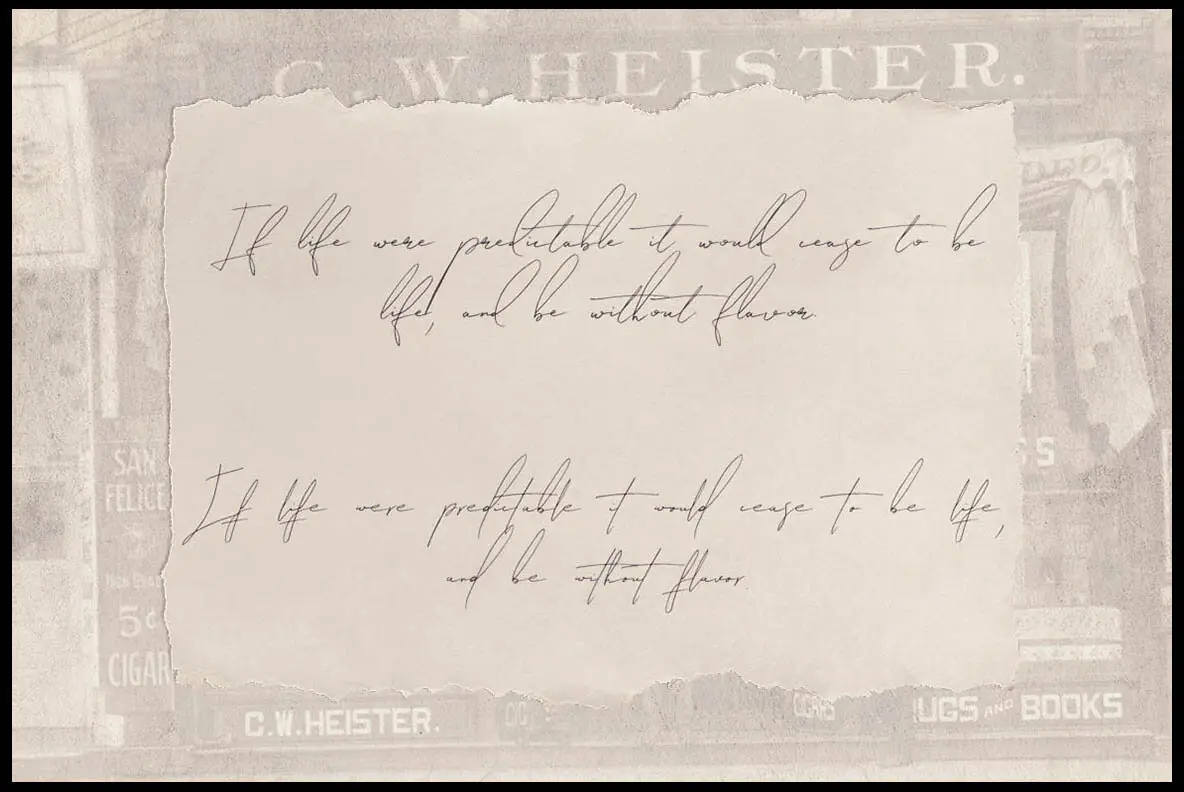 C. W. HEISTER.
If life were predictable it would cease to be
life, and be without flavor.
If life were predictable it would cease to be life,
and be without flavor.
SAN
FELICE
5¢
CIGAR
C.W.HEISTER.
CIGARS
UGS AND BOOKS